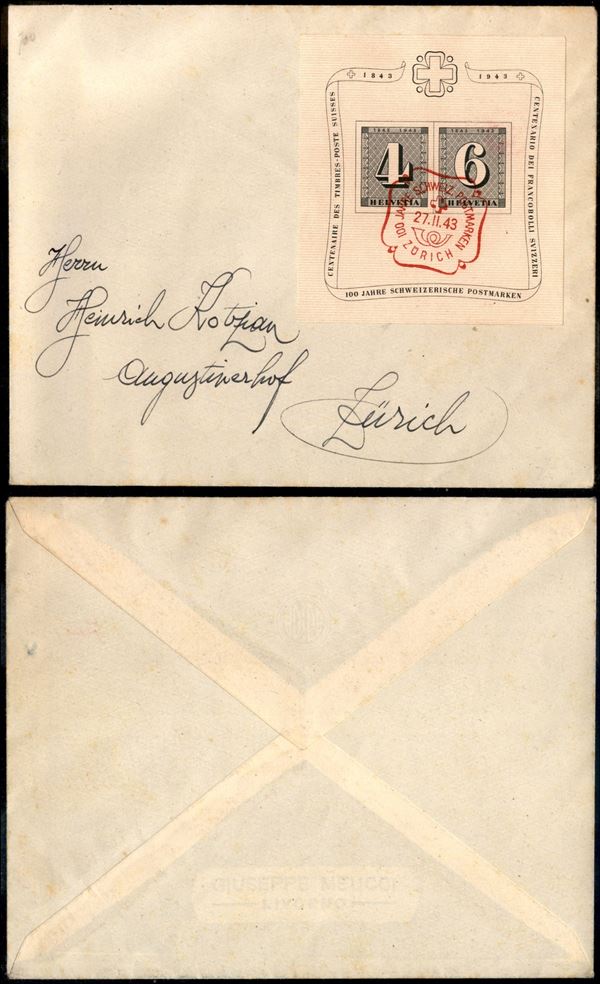 1843 1943
CENTENAIRE DES TIMBRES-POSTE SUISSES
CENTENARIO DEI FRANCOBOLLI SVIZZERI
1843 1943
1843 1943
4
6
HELVETIA
HELVETIA
100 JAHRE SCHWEIZ. POSTMARKEN
27.II.43
ZÜRICH
100 JAHRE SCHWEIZERISCHE POSTMARKEN
Herrn
Heinrich Kobzian
Augustinerhof
Zürich
GIUSEPPE MEUCCI
LIVORNO